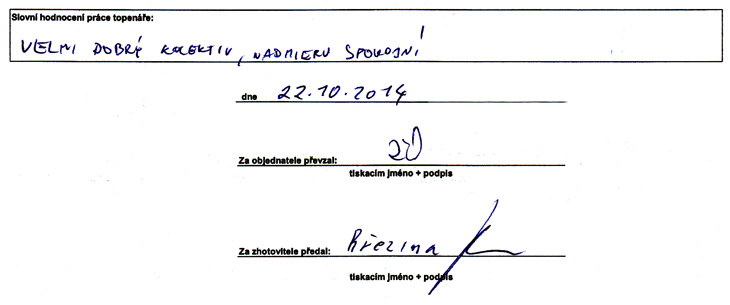 Slovní hodnocení práce topenáře:
VELMI DOBRÝ KOLEKTIV, NADMIERU SPOKOJNÍ
dne 22.10.2014
Za objednatele převzal:
tiskacím jméno + podpis
Za zhotovitele předal: Březina
tiskacím jméno + podpis